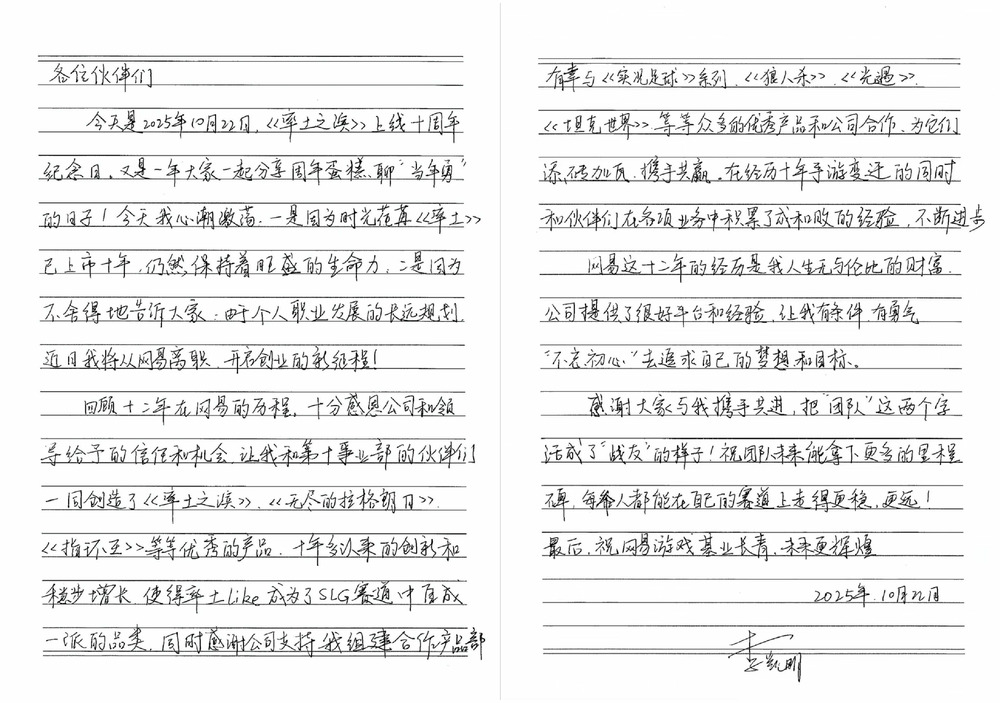 各位伙伴们
今天是2025年10月22日，《率土之滨》上线十周年
纪念日，又是一年大家一起分享周年蛋糕、聊“当年勇”
的日子！今天我心潮激荡，一是因为时光荏苒《率土》
已上市十年，仍然保持着旺盛的生命力，二是因为
不舍得地告诉大家：由于个人职业发展的长远规划，
近日我将从网易离职，开启创业的新征程！
回顾十二年在网易的历程，十分感恩公司和领
导给予的信任和机会，让我和第十事业部的伙伴们
一同创造了《率土之滨》、《无尽的拉格朗日》、
《指环王》等等优秀的产品，十年多以来的创新和
稳步增长，使得率土like成为了SLG赛道中自成
一派的品类，同时感谢公司支持我组建合作产品部
有幸与《实况足球》系列、《狼人杀》、《光遇》、
《坦克世界》等等众多的优秀产品和公司合作，为它们
添砖加瓦，携手共赢。在经历十年手游变迁的同时
和伙伴们在各项业务中积累了成和败的经验，不断进步
网易这十二年的经历是我人生无与伦比的财富，
公司提供了很好平台和经验，让我有条件有勇气
“不忘初心”去追求自己的梦想和目标。
感谢大家与我携手共进，把“团队”这两个字
活成了“战友”的样子！祝团队未来能拿下更多的里程
碑，每个人都能在自己的赛道上走得更稳，更远！
最后，祝网易游戏基业长青，未来更辉煌
2025年.10月22日
李凯明